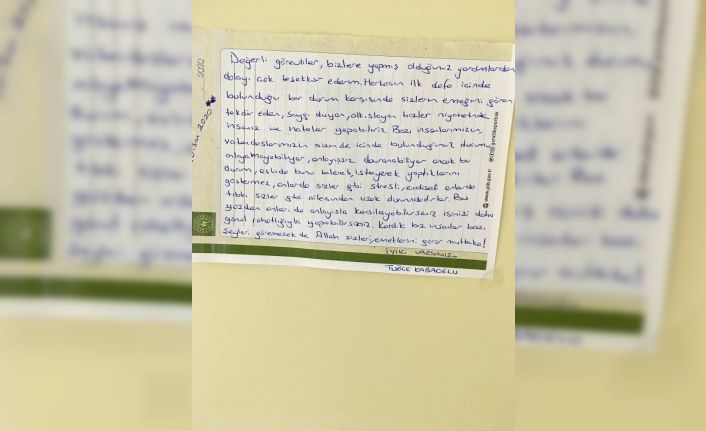 Değerli görevliler, bizlere yapmış olduğunuz yardımlardan
dolayı çok teşekkür ederim. Herkesin ilk defa içinde
bulunduğu bir durum karşısında sizlerin emeğini gören
takdir eden, saygı duyan, alkışlayan bizler niyetinde
insanız ve hatalar yapabiliriz Bazı insanlarımızın,
vatandaşlarımızın sizin de içinde bulunduğunuz durumu
anlayamayabiliyor, anlayışsız davranabiliyor ancak bu
durum, aslında bunu bilerek, isteyerek yaptıklarını
göstermez, onlarda sizler gibi stresli, endişeli onlarda
tıpkı sizler gibi ailesinden uzak durumdadırlar. Bu
yüzden onları da anlayışla karşılayabilirseniz işinizi daha
gönül rahatlığıyla yapabilirsiniz. Kaldık biz insanlar bazı
şeyleri göremesek de Allah sizleri, emeklerini görür mutlaka!
İYİKİ VARSINIZ..
TUĞÇE KABAOĞLU
2020
2020
www.gsb.gov.tr
gencliksporbak